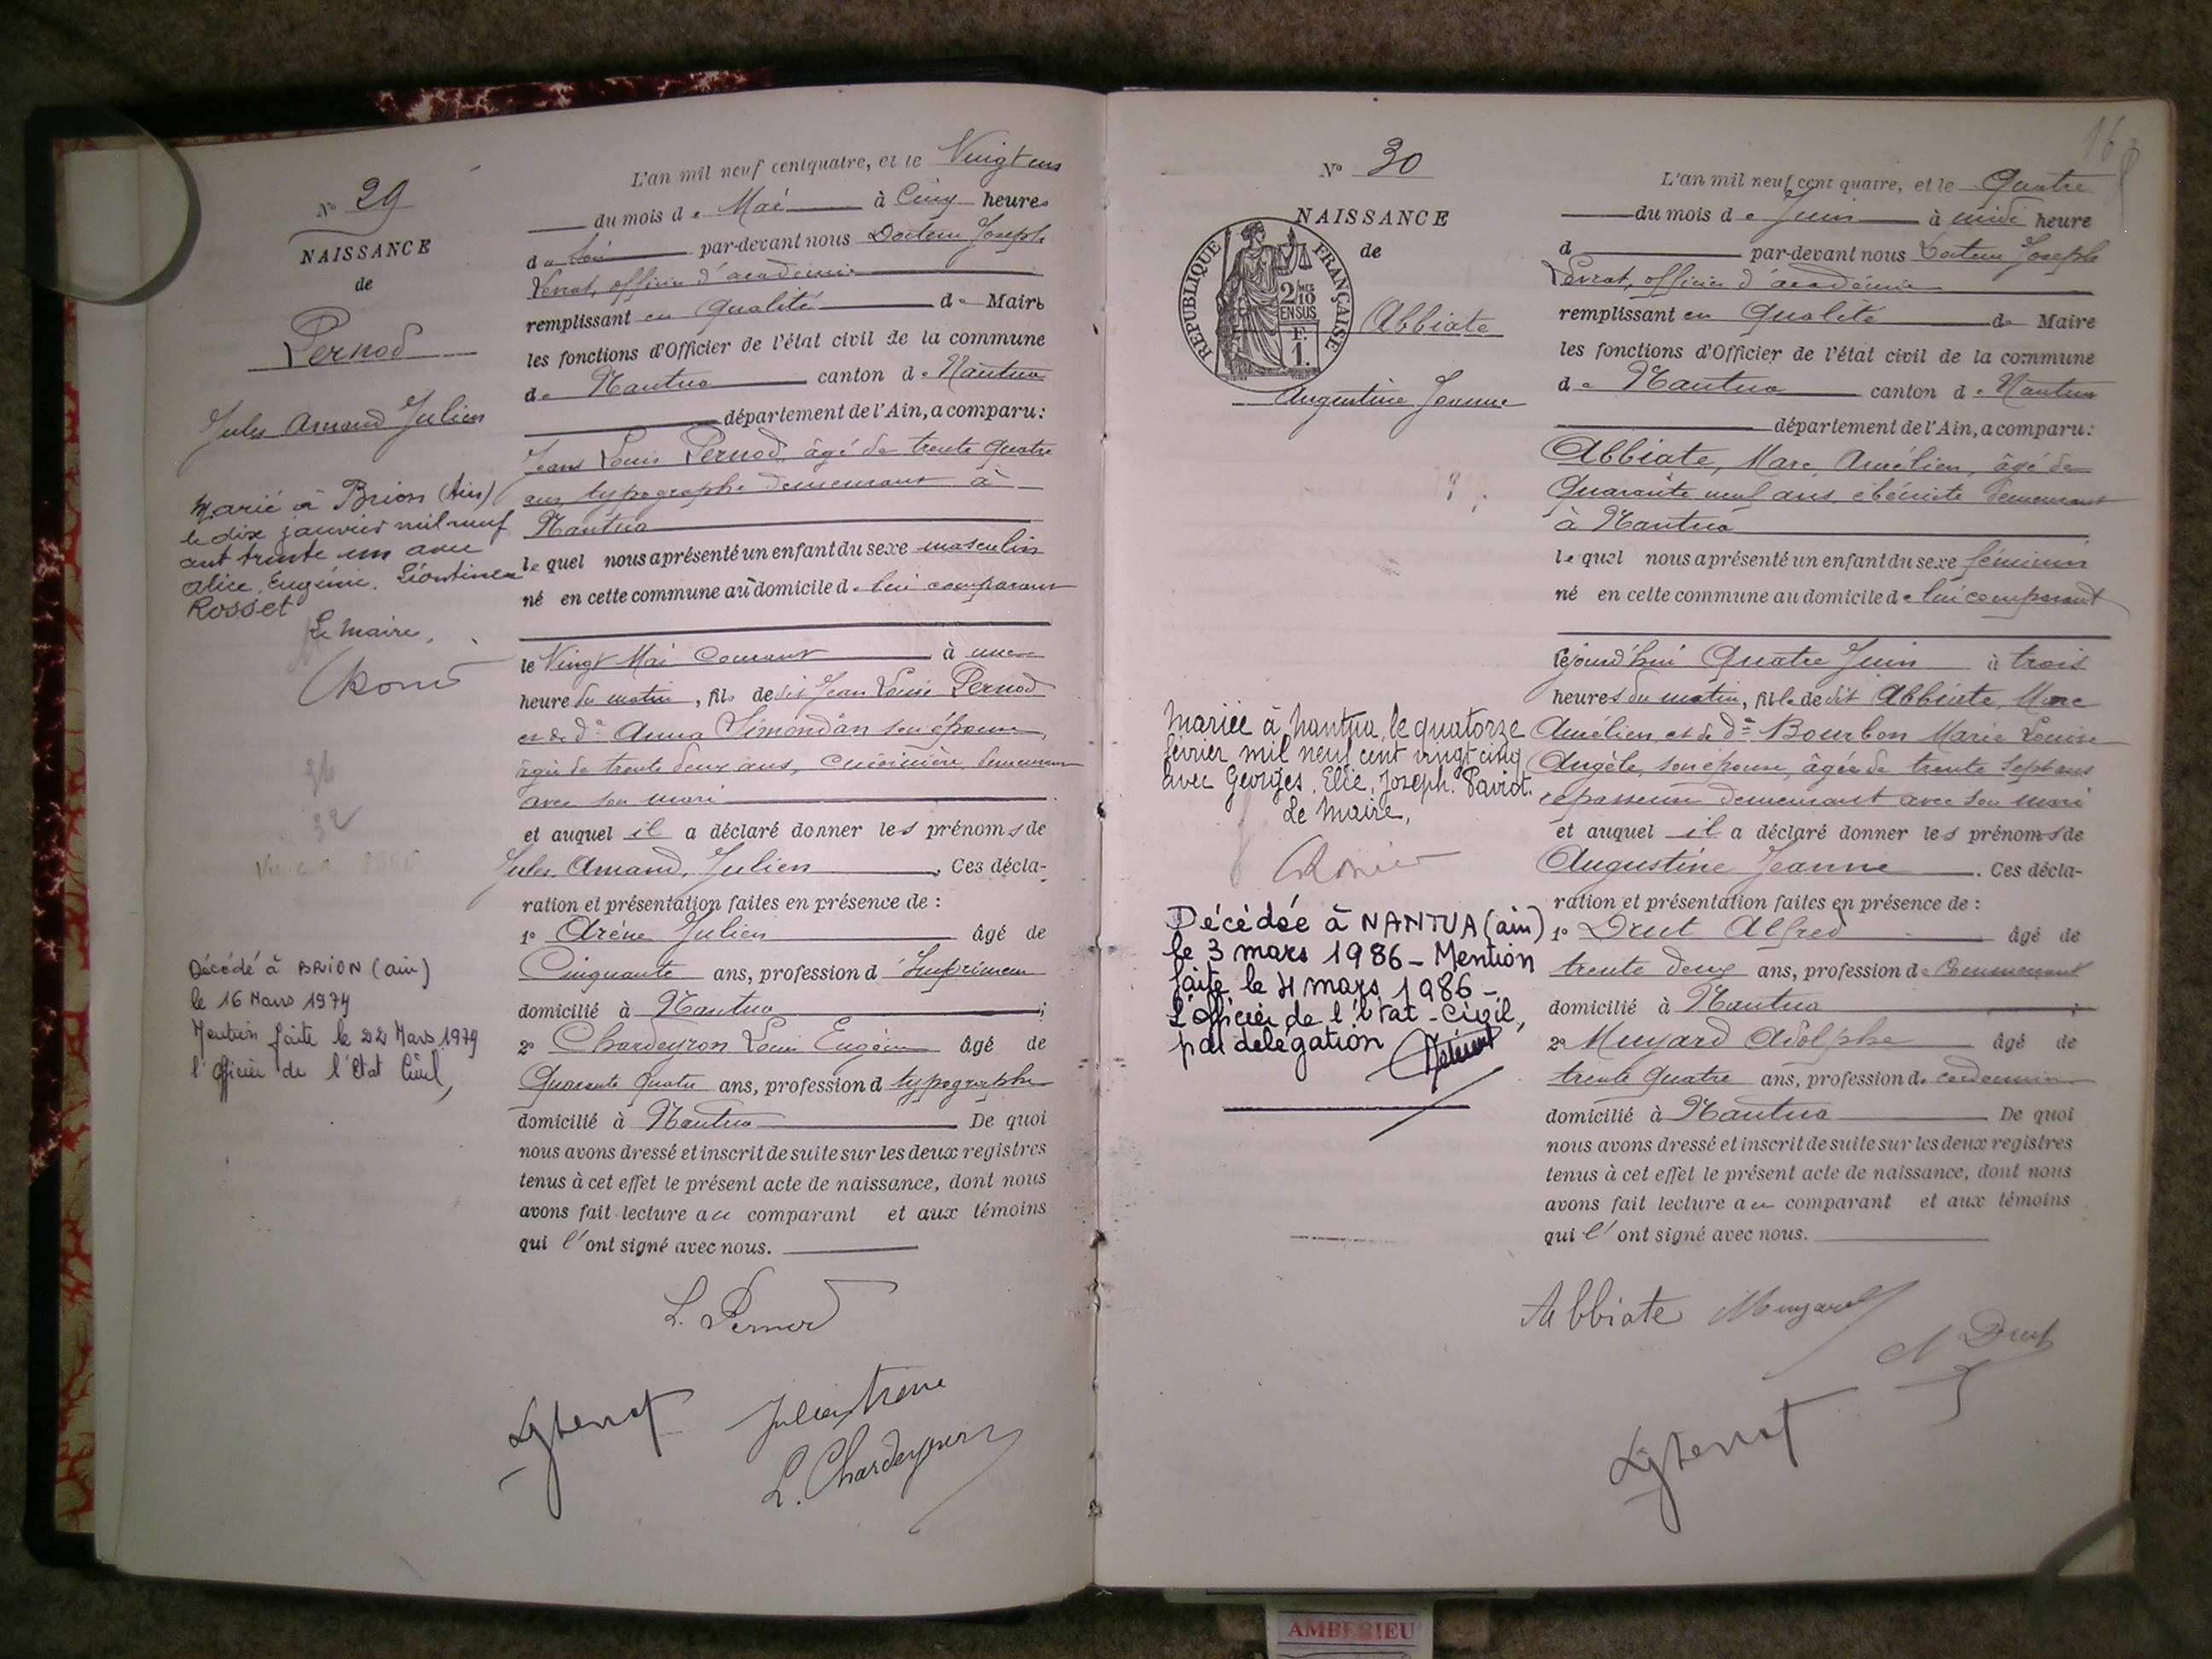 Nº 29
NAISSANCE
de
Pernod
Jules Amand Julien
Marié à Brion (Ain)
le dix janvier mil neuf
cent trente un avec
Alice, Eugénie, Léontine
Rosset
Le Maire,
Décédé à BRION (ain)
le 16 Mars 1974
Mention faite le 22 Mars 1979
l'Officier de l'Etat Civil,
L'an mil neuf cent quatre, et le Vingt un
du mois de Mai à Cinq heures
du soir par-devant nous Docteur Joseph
Levrat, officier d'académie
remplissant en qualité de Maire
les fonctions d'Officier de l'état civil de la commune
de Nantua canton de Nantua
département de l'Ain, a comparu :
Jean Louis Pernod âgé de trente quatre
ans typographe demeurant à
Nantua
lequel nous a présenté un enfant du sexe masculin
né en cette commune au domicile de lui comparant
le Vingt Mai Courant à une
heure du matin, fils de dit Jean Louis Pernod
et de De Anna Simondan son épouse,
âgée de trente deux ans, cuisinière, demeurant
avec son mari
et auquel il a déclaré donner les prénoms de
Jules, Amand, Julien. Ces décla-
ration et présentation faites en présence de :
1º Arène Julien âgé de
Cinquante ans, profession d'Imprimeur
domicilié à Nantua ;
2º Chardeyron Louis Eugène âgé de
Quarante quatre ans, profession d typographe
domicilié à Nantua De quoi
nous avons dressé et inscrit de suite sur les deux registres
tenus à cet effet le présent acte de naissance, dont nous
avons fait lecture au comparant et aux témoins
qui l'ont signé avec nous.
L. Pernod
Julien Arene
L. Chardeyron
16
Nº 30
NAISSANCE
de
REPUBLIQUE FRANÇAISE
2/10 MES
EN SUS
F.
1.
Abbiate
Augustine Jeanne
Mariée à Nantua, le quatorze
février mil neuf cent vingt cinq
avec Georges, Elie, Joseph, Paviot.
Le Maire,
Décédée à NANTUA (ain)
le 3 mars 1986 - Mention
faite le 4 mars 1986 -
L'Officier de l'Etat-Civil,
par délégation
L'an mil neuf cent quatre, et le Quatre
du mois de Juin à midi heure
d par-devant nous Docteur Joseph
Levrat, officier d'académie
remplissant en qualité de Maire
les fonctions d'Officier de l'état civil de la commune
de Nantua canton de Nantua
département de l'Ain, a comparu :
Abbiate, Marc Aurélien, âgé de
Quarante neuf ans, ébéniste demeurant
à Nantua
lequel nous a présenté un enfant du sexe féminin
né en cette commune au domicile de lui comparant
cejourd'hui Quatre Juin à trois
heures du matin, fille de dit Abbiate, Marc
Aurélien et de De Bourbon Marie Louise
Angèle, son épouse, âgée de trente sept ans
repasseuse demeurant avec son mari
et auquel il a déclaré donner les prénoms de
Augustine Jeanne. Ces décla-
ration et présentation faites en présence de :
1º Drut Alfred âgé de
trente deux ans, profession de
domicilié à Nantua ;
2º Muyard Adolphe âgé de
trente quatre ans, profession de cordonnier
domicilié à Nantua De quoi
nous avons dressé et inscrit de suite sur les deux registres
tenus à cet effet le présent acte de naissance, dont nous
avons fait lecture au comparant et aux témoins
qui l'ont signé avec nous.
Abbiate Muyard
A Drut
AMBERIEU